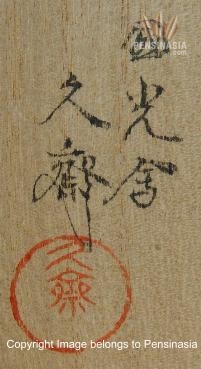 国光會
久齋
久齋
PENSINASIA
.com
Copyright Image belongs to Pensinasia